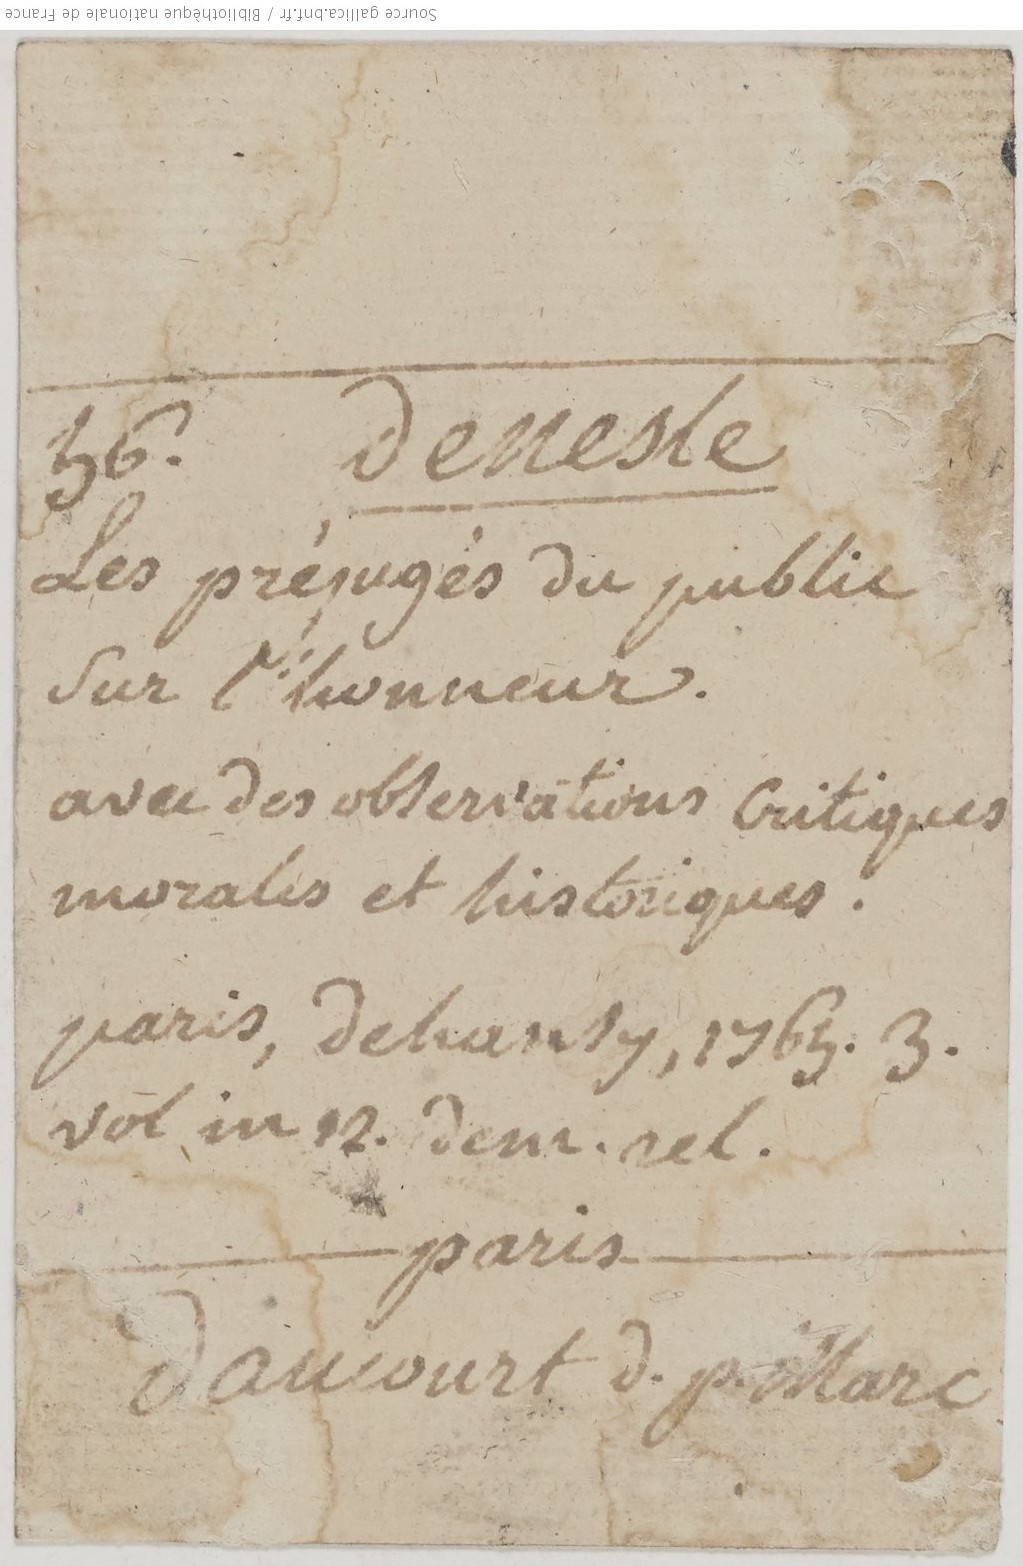 Source gallica.bnf.fr / Bibliothèque nationale de France
56. denesle
Les préjugés du public
sur l'honneur.
avec des observations critiques
morales et historiques.
paris, dehansy, 1765. 3.
vol in 12. dem. rel.
paris
Daucourt d. p. Marc